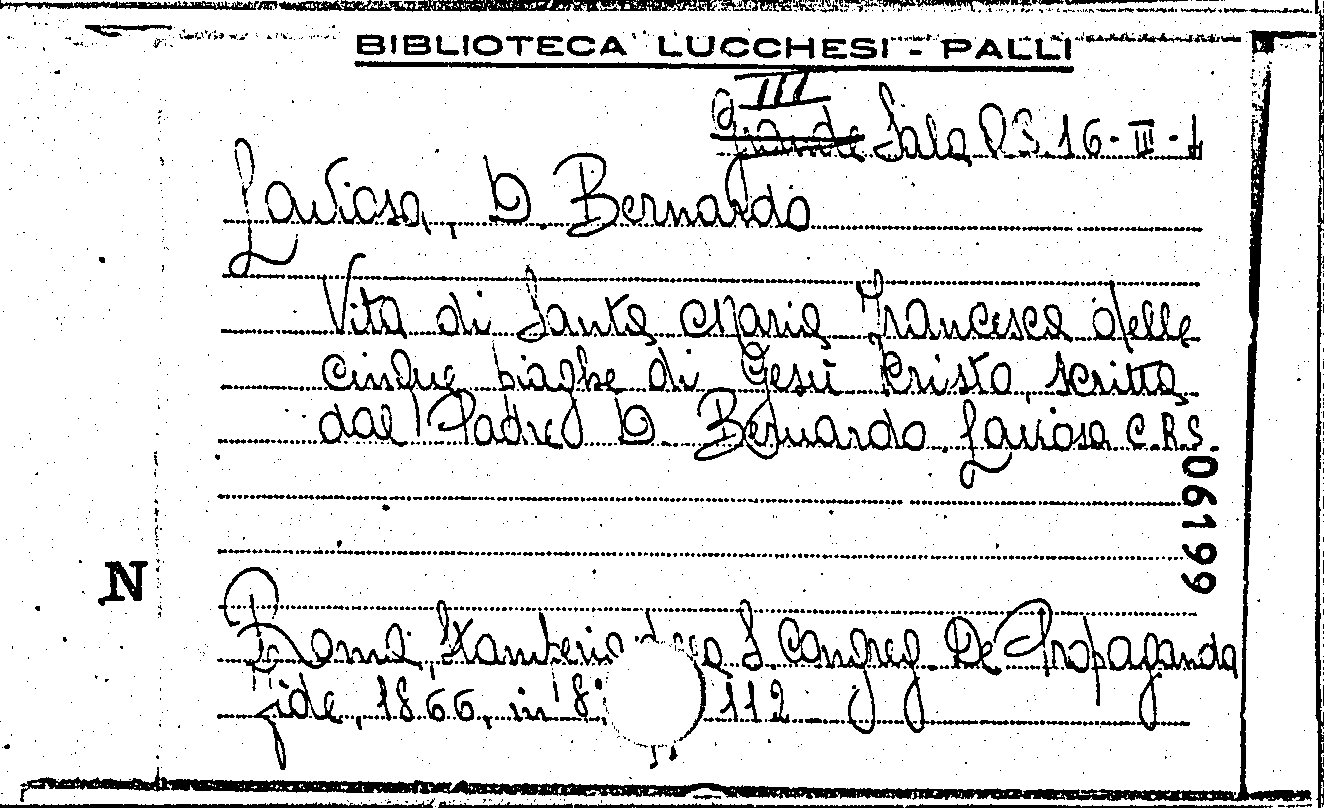 BIBLIOTECA LUCCHESI - PALLI
III
Grande Sala P3.16-III-1
Laviosa, D Bernardo
Vita di Santa Maria Francesca delle
cinque piaghe di Gesù Cristo scritta
dal Padre D. Bernardo Laviosa C.R.S.
06199
N
Roma, Stamperia S. Congreg. De Propaganda
Fide, 1866, in 8° 112